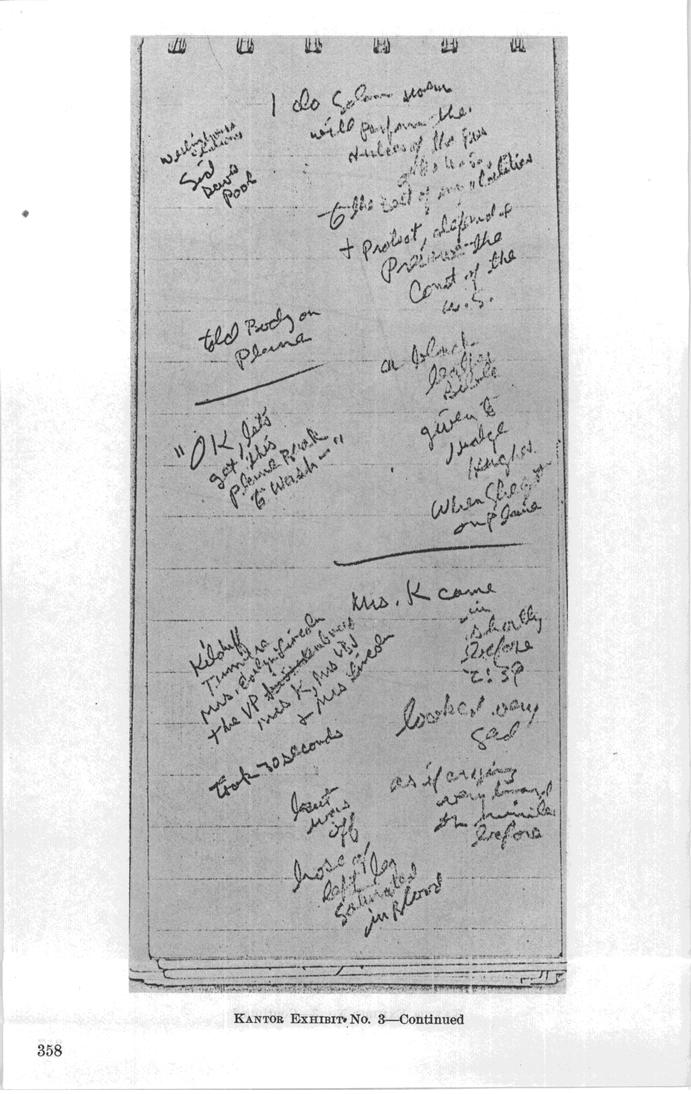 I do Solem swear
will perform the
duties of the Pres
of the U.S.
to the best of my abilities
+ Protect, defend +
Preserve the
Const of the
U.S.
Westinghouse
Stations
Sid
Davis
Pool
told Body on
Plane
a black
leather
Bible
given to
Judge
Hughes
When She got
on plane
"OK, let's
get this
plane Back
to Wash—"
Mrs. K came
in
shortly
before
2:39
looked very
sad
as if crying
very hard
minutes
before
Kilduff
Mrs. Evelyn Lincoln
the VP
Mrs K, Mrs
+ Mrs Lincoln
took 30 seconds
hat
was
off
hose of
left leg
Saturated
in Blood
KANTOR EXHIBIT No. 3—Continued
358